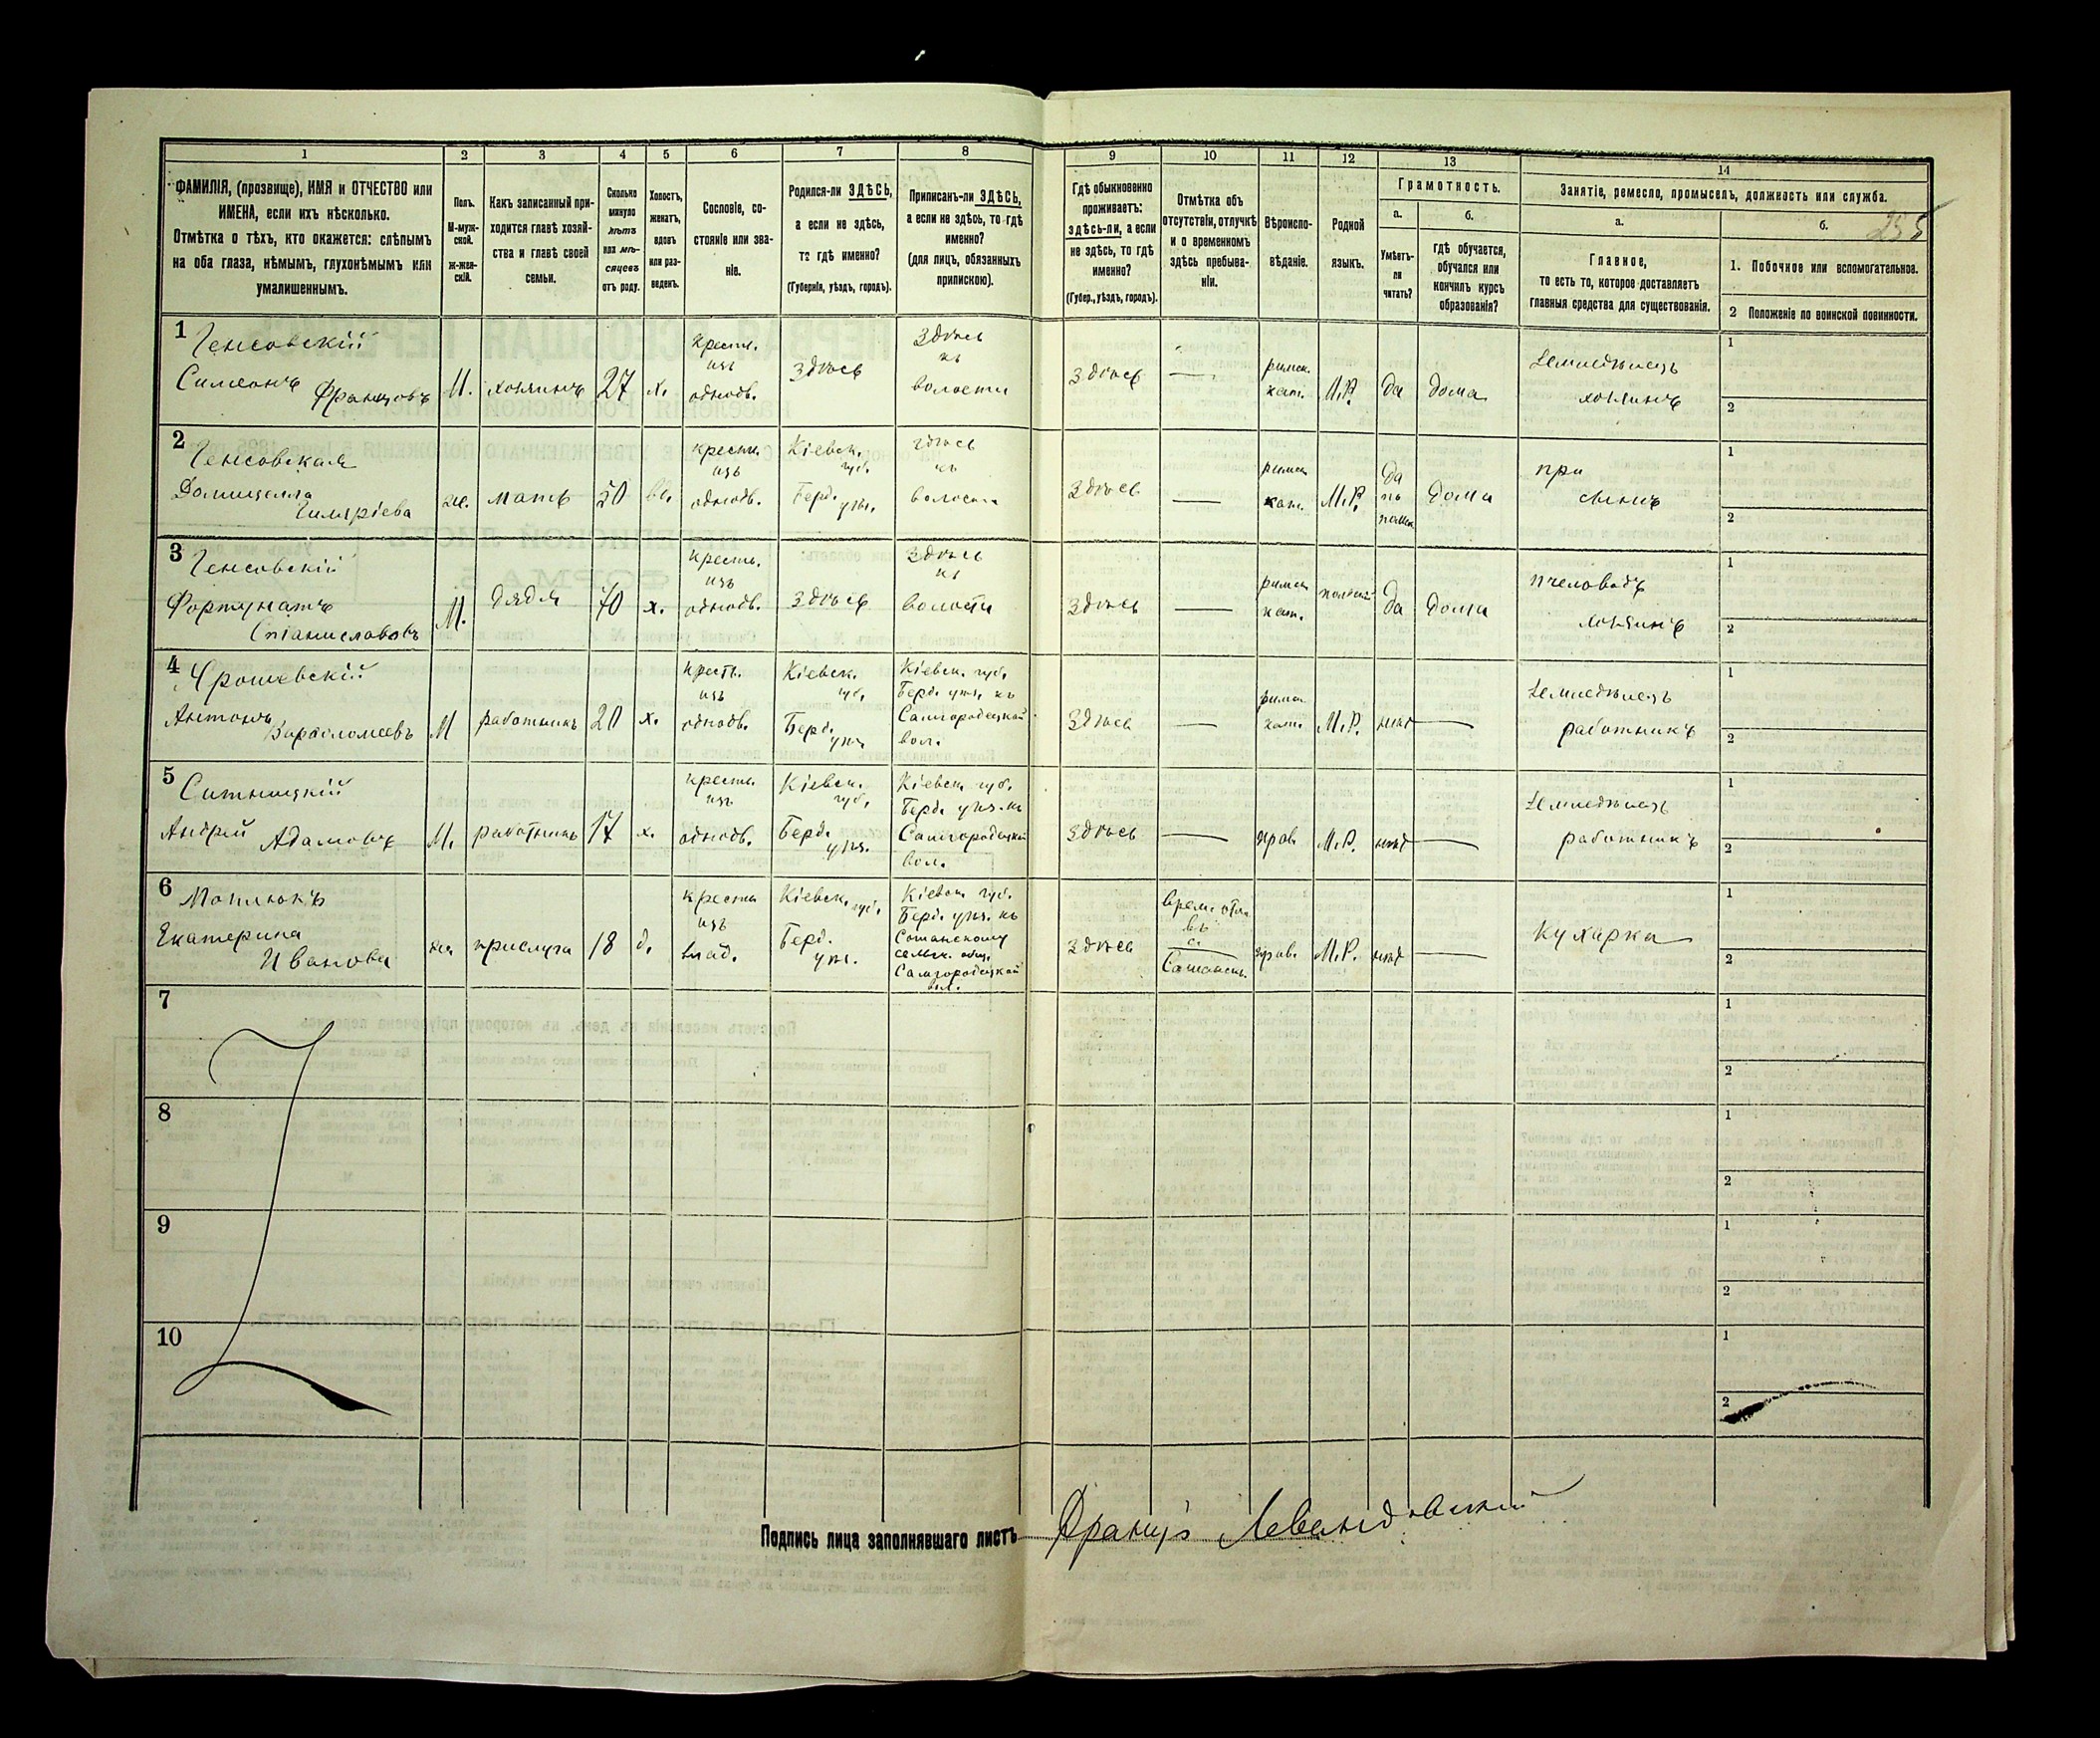 1
2
3
4
5
6
7
8
9
10
11
12
13
14
ФАМИЛІЯ, (прозвище), ИМЯ и ОТЧЕСТВО или
ИМЕНА, если ихъ нѣсколько.
Отмѣтка о тѣхъ, кто окажется: слѣпымъ
на оба глаза, нѣмымъ, глухонѣмымъ или
умалишеннымъ.
Полъ.
М-муж-
ской.
Ж-жен-
скій.
Какъ записанный при-
ходится главѣ хозяй-
ства и главѣ своей
семьи.
Сколько
минуло
лѣтъ
или мѣ-
сяцевъ
отъ роду.
Холостъ,
женатъ,
вдовъ
или раз-
веденъ.
Сословіе, со-
стояніе или зва-
ніе.
Родился-ли ЗДѢСЬ,
а если не здѣсь,
то гдѣ именно?
(Губернія, уѣздъ, городъ).
Приписанъ-ли ЗДѢСЬ,
а если не здѣсь, то гдѣ
именно?
(для лицъ, обязанныхъ
припискою).
Гдѣ обыкновенно
проживаетъ:
здѣсь-ли, а если
не здѣсь, то гдѣ
именно?
(Губер., уѣздъ, городъ).
Отмѣтка объ
отсутствіи, отлучкѣ
и о временномъ
здѣсь пребыва-
ніи.
Вѣроиспо-
вѣданіе.
Родной
языкъ.
Грамотность.
а.
Умѣетъ-
ли
читать?
б.
гдѣ обучается,
обучался или
кончилъ курсъ
образованія?
Занятіе, ремесло, промыселъ, должность или служба.
а.
Главное,
то есть то, которое доставляетъ
главныя средства для существованія.
б.
1. Побочное или вспомогательное.
2 Положеніе по воинской повинности.
1
Симеонъ Францовъ
М.
хозяинъ
27
х.
крестьн.
изъ
однодв.
здѣсь
Здѣсь
къ
волости
здѣсь
римск.
кат.
М.Р.
да
дома
Земледѣлецъ
хозяинъ
1
2
2
ж.
мать
50
вд.
крестьн.
изъ
однодв.
Кіевск.
губ.
Берд. уѣз.
здѣсь
къ
волости
здѣсь
римск.
кат.
М.Р.
да
по
польск.
дома
при
сынѣ
1
2
3
Фортунатъ
Станиславовъ
М.
дядя
70
х.
крестьн.
изъ
однодв.
здѣсь
Здѣсь
къ
волости
здѣсь
римск.
кат.
польскій
да
дома
пчеловодъ
хозяинъ
1
2
4
Антонъ
Варфоломеевъ
М
работникъ
20
х.
крестьн.
изъ
однодв.
Кіевск.
губ.
Берд.
уѣз.
Кіевск. губ.
Берд. уѣз. къ
Самгородецкой
вол.
здѣсь
римск.
кат.
М.Р.
нѣтъ
Земледѣлецъ
работникъ
1
2
5
Ситницкій
Андрей Адамовъ
М.
работникъ
17
х.
крестьн.
изъ
однодв.
Кіевск.
губ.
Берд.
уѣз.
Кіевск. губ.
Берд. уѣз. къ
Самгородецкой
вол.
здѣсь
прав.
М.Р.
нѣтъ
Земледѣлецъ
работникъ
1
2
6
Екатерина
Иванова
жен.
прислуга
18
д.
крестьн.
изъ
влад.
Кіевск. губ.
Берд.
уѣз.
Кіевск. губ.
Берд. уѣз. къ
сельск. общ.
Самгородецкой
вол.
здѣсь
врем. отл.
въ
с.
прав.
М.Р.
нѣтъ
кухарка
1
2
7
1
2
8
1
2
9
1
2
10
1
2
Подпись лица заполнявшаго листъ Францъ Левандовскій